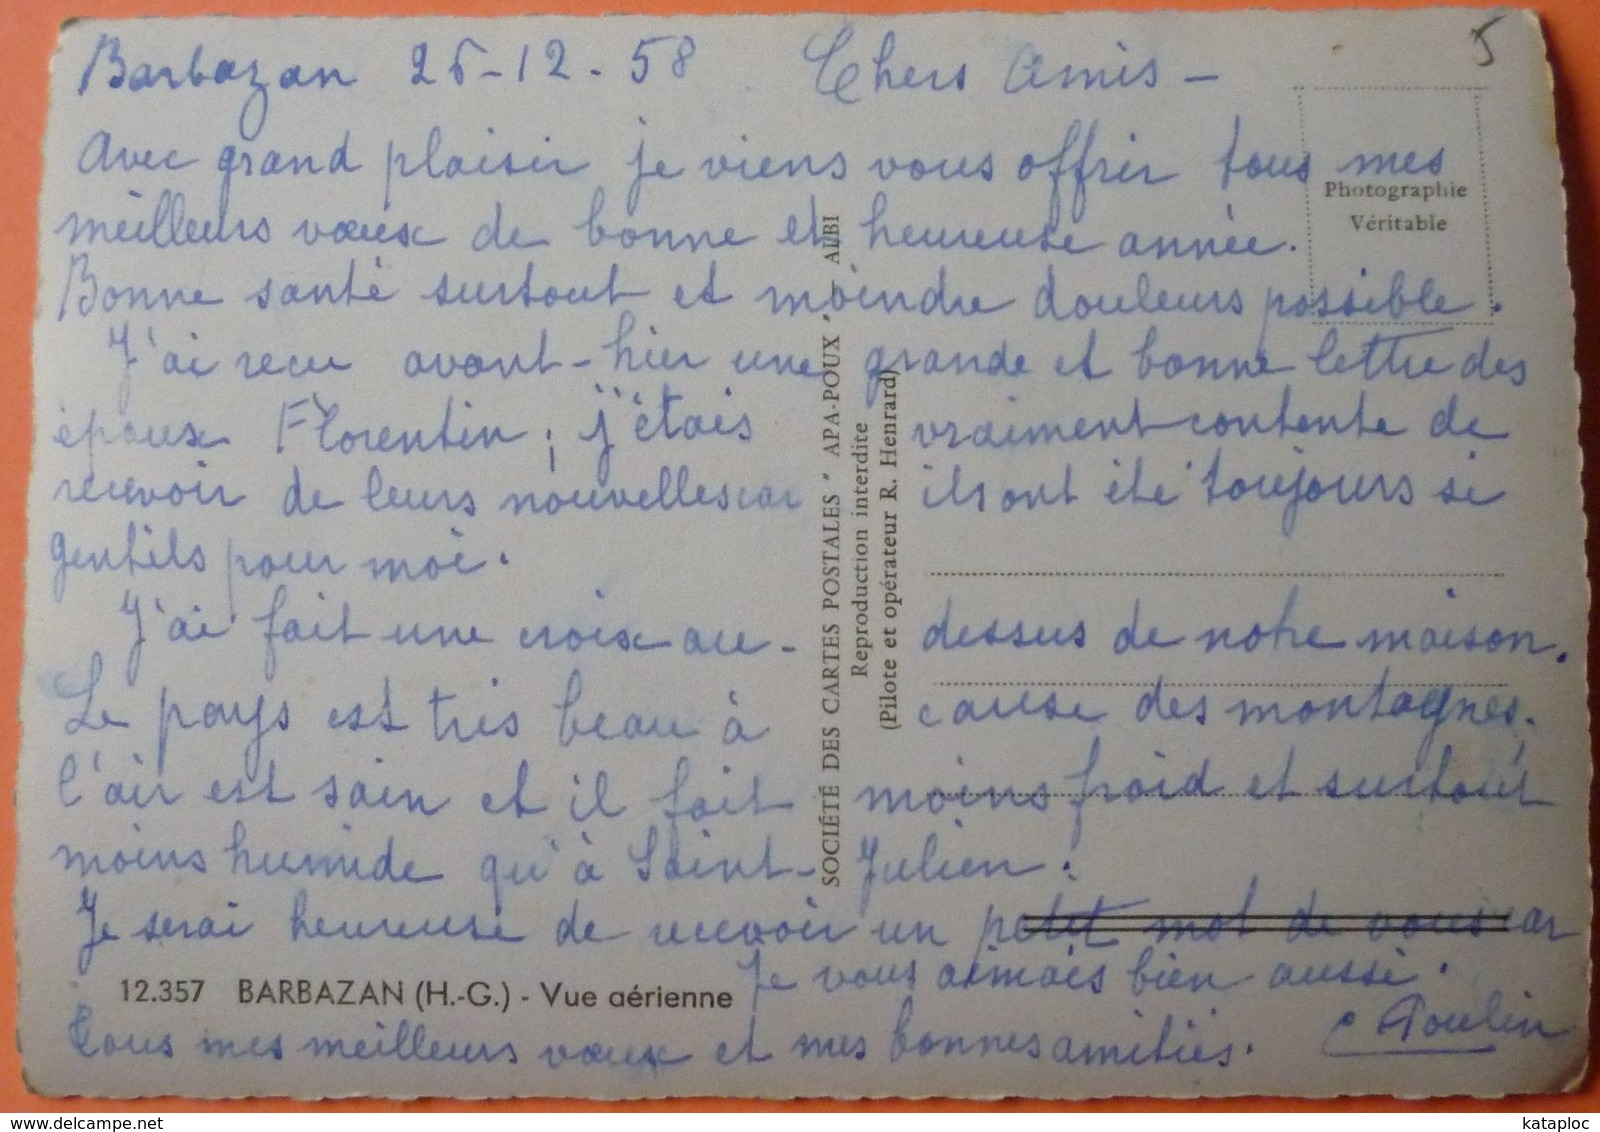 5
Barbazan 26-12-58 Chers Amis -
Avec grand plaisir je viens vous offrir tous mes
meilleurs vœux de bonne et heureuse année.
Bonne santé surtout et moindre douleurs possible.
J'ai recu avant-hier une grande et bonne lettre des
époux Florentin, j'étais vraiment contente de
recevoir de leurs nouvelles car ils ont été toujours si
gentils pour moi.
J'ai fait une croix au-dessus de notre maison.
Le pays est très beau à cause des montagnes,
l'air est sain et il fait moins froid et surtout
moins humide qu'à Saint-Julien.
Je serai heureuse de recevoir un petit mot de vous car
je vous aimais bien aussi.
Tous mes meilleurs vœux et mes bonnes amitiés. C Poulin
Photographie
Véritable
SOCIÉTÉ DES CARTES POSTALES "APA-POUX" - ALBI
Reproduction interdite
(Pilote et opérateur R. Henrard)
12.357 BARBAZAN (H.-G.) - Vue aérienne
www.delcampe.net
kataploc